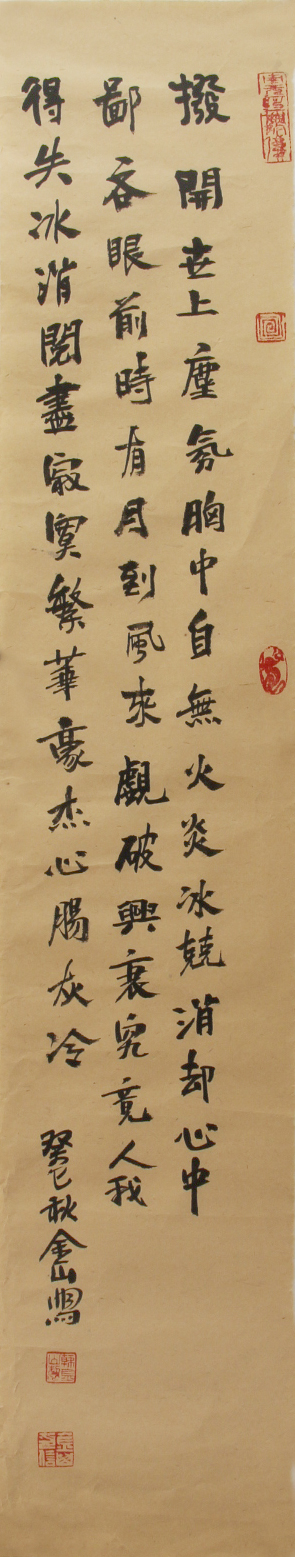 撥開世上塵氛胸中自無火炎冰兢消却心中
鄙吝眼前時有月到風來覷破興衰究竟人我
得失冰消閱盡寂寞繁華豪杰心腸灰冷
癸巳秋金山